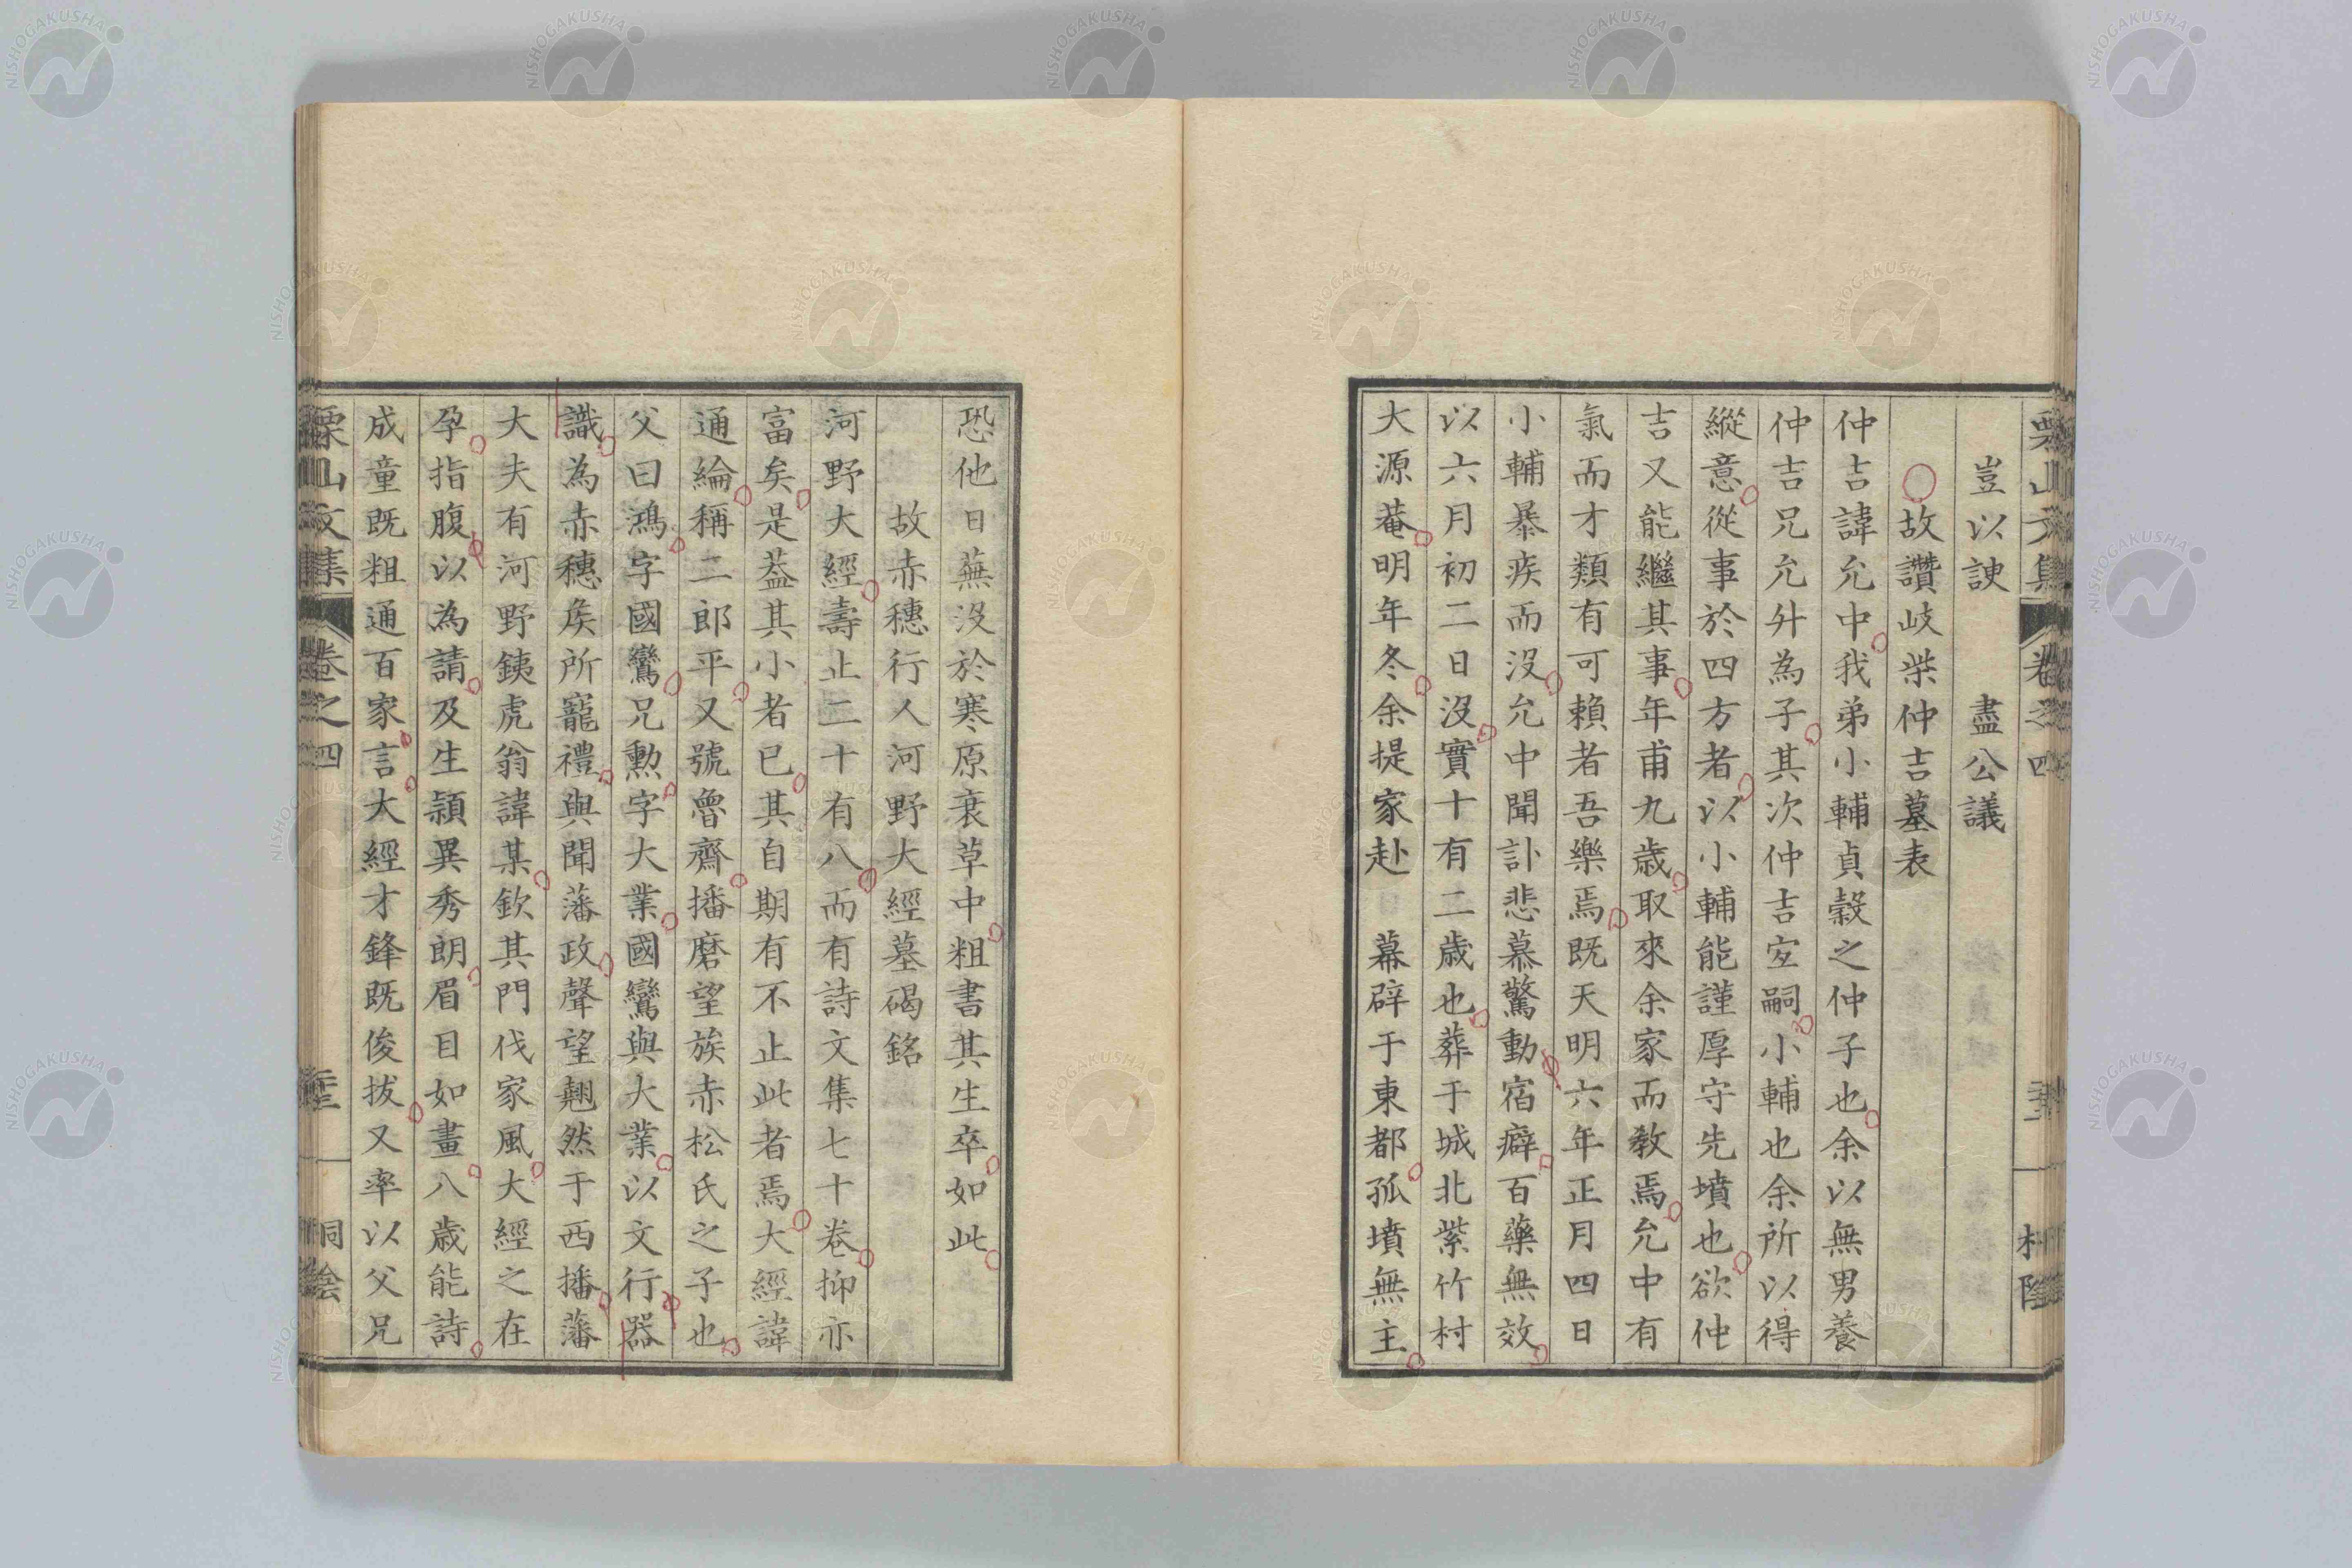 豈以諛　盡公議
故讚岐柴仲吉墓表
仲吉諱允中我弟小輔貞穀之仲子也余以無男養
仲吉兄允升為子其次仲吉宜嗣小輔也余所以得
縱意從事於四方者以小輔能謹厚守先墳也欲仲
吉又能繼其事年甫九歲取來余家而教焉允中有
氣而才類有可賴者吾樂焉既天明六年正月四日
小輔暴疾而沒允中聞訃悲慕驚動宿癖百藥無效
以六月初二日沒實十有二歲也葬于城北紫竹村
大源菴明年冬余提家赴　幕辟于東都孤墳無主
恐他日蕪沒於寒原衰草中粗書其生卒如此
故赤穗行人河野大經墓碣銘
河野大經壽止二十有八而有詩文集七十卷抑亦
富矣是葢其小者已其自期有不止此者焉大經諱
通綸稱二郎平又號魯齋播磨望族赤松氏之子也
父曰鴻字國鸞兄勲字大業國鸞與大業以文行器
識為赤穗矦所寵禮與聞藩政聲望翹然于西播藩
大夫有河野銕虎翁諱某欽其門伐家風大經之在
孕指腹以為請及生頴異秀朗眉目如畫八歲能詩
成童既粗通百家言大經才鋒既俊拔又率以父兄
栗山文集　卷之四
NISHOGAKUSHA